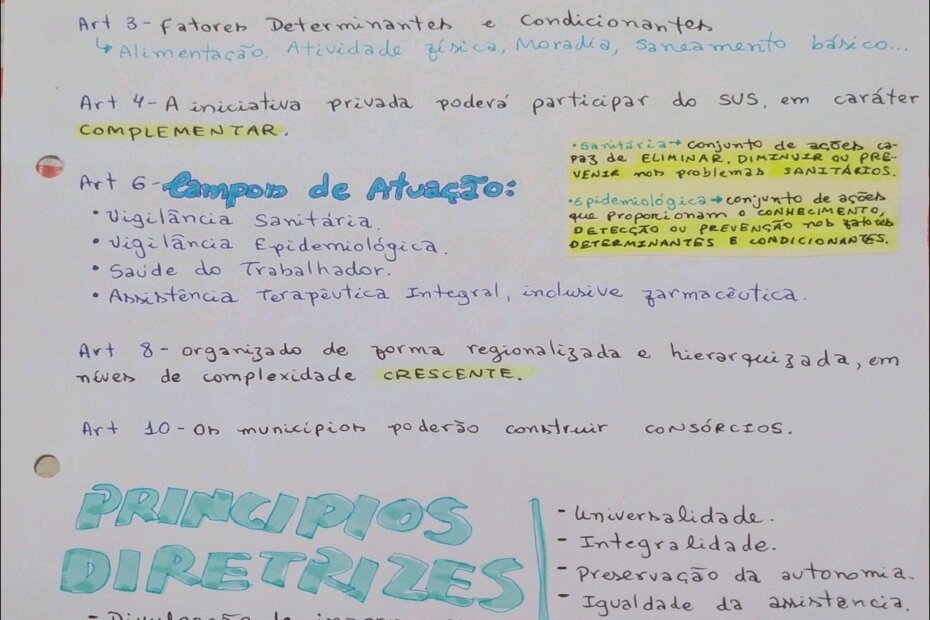 Art 3 - Fatores Determinantes e Condicionantes
↳ Alimentação, Atividade física, Moradia, Saneamento básico...
Art 4 - A iniciativa privada poderá participar do SUS, em caráter
COMPLEMENTAR.
• Sanitária → conjunto de ações ca-
paz de ELIMINAR, DIMINUIR OU PRE-
VENIR nos problemas SANITÁRIOS.
• Epidemiológica → conjunto de ações
que proporcionam o CONHECIMENTO,
DETECÇÃO OU PREVENÇÃO nos fatores
DETERMINANTES E CONDICIONANTES.
Art 6 - Campos de Atuação:
• Vigilância Sanitária.
• Vigilância Epidemiológica.
• Saúde do Trabalhador.
• Assistência Terapêutica Integral, inclusive farmacêutica.
Art 8 - organizado de forma regionalizada e hierarquizada, em
níves de complexidade CRESCENTE.
Art 10 - Os municípios poderão construir CONSÓRCIOS.
PRINCIPIOS
DIRETRIZES
- Universalidade.
- Integralidade.
- Preservação da autonomia.
- Igualdade da assistência.
- Divulgação de